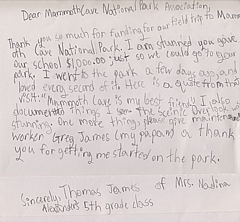 Dear Mammoth Cave National Park Association,
Thank you so much for funding for our field trip to Mammoth
Cave National Park. I am stunned you gave
our school $1,000.00 just so we could go to your
park. I went to the park a few days ago, and
loved every second of it. Here is a quote from the
visit. "Mammoth Cave is my best friend". I also
documented things, I saw the scenic
stunning. One more thing, please give maintenance
worker Greg James (my papaw) a thank
you for getting me started on the park.
Sincerely, Thomas James of Mrs. Nadina
Alexander's 5th grade class